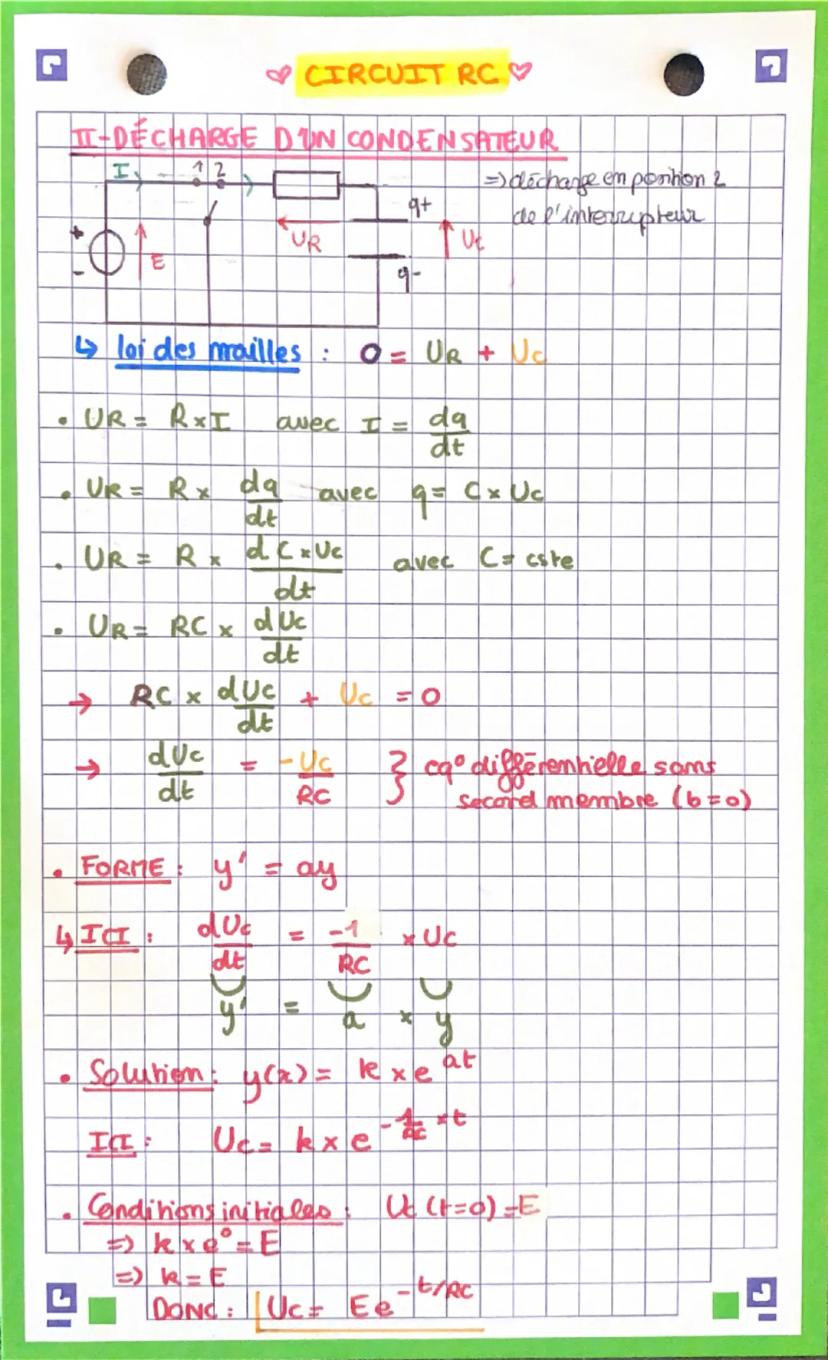 ♡ CIRCUIT RC ♡
II-DÉCHARGE D'UN CONDENSATEUR
I 1 2
=> décharge en position 2
de l'interrupteur
q+
UR
Uc
+
E
-
q-
↳ loi des mailles : 0 = UR + Uc
• UR = R x I avec I = dq/dt
• UR = R x dq/dt avec q = C x Uc
• UR = R x d C x Uc/dt avec C = cste
• UR = RC x dUc/dt
→ RC x dUc/dt + Uc = 0
→ dUc/dt = -Uc/RC } eq° différentielle sans
second membre (b=0)
• FORME : y' = ay
↳ ICI : dUc/dt = -1/RC x Uc
y' = a x y
• Solution : y(x) = k x e^at
ICI : Uc = k x e^-1/RC x t
• Conditions initiales : Uc (t=0) = E
=> k x e° = E
=> k = E
DONC : Uc = Ee^-t/RC